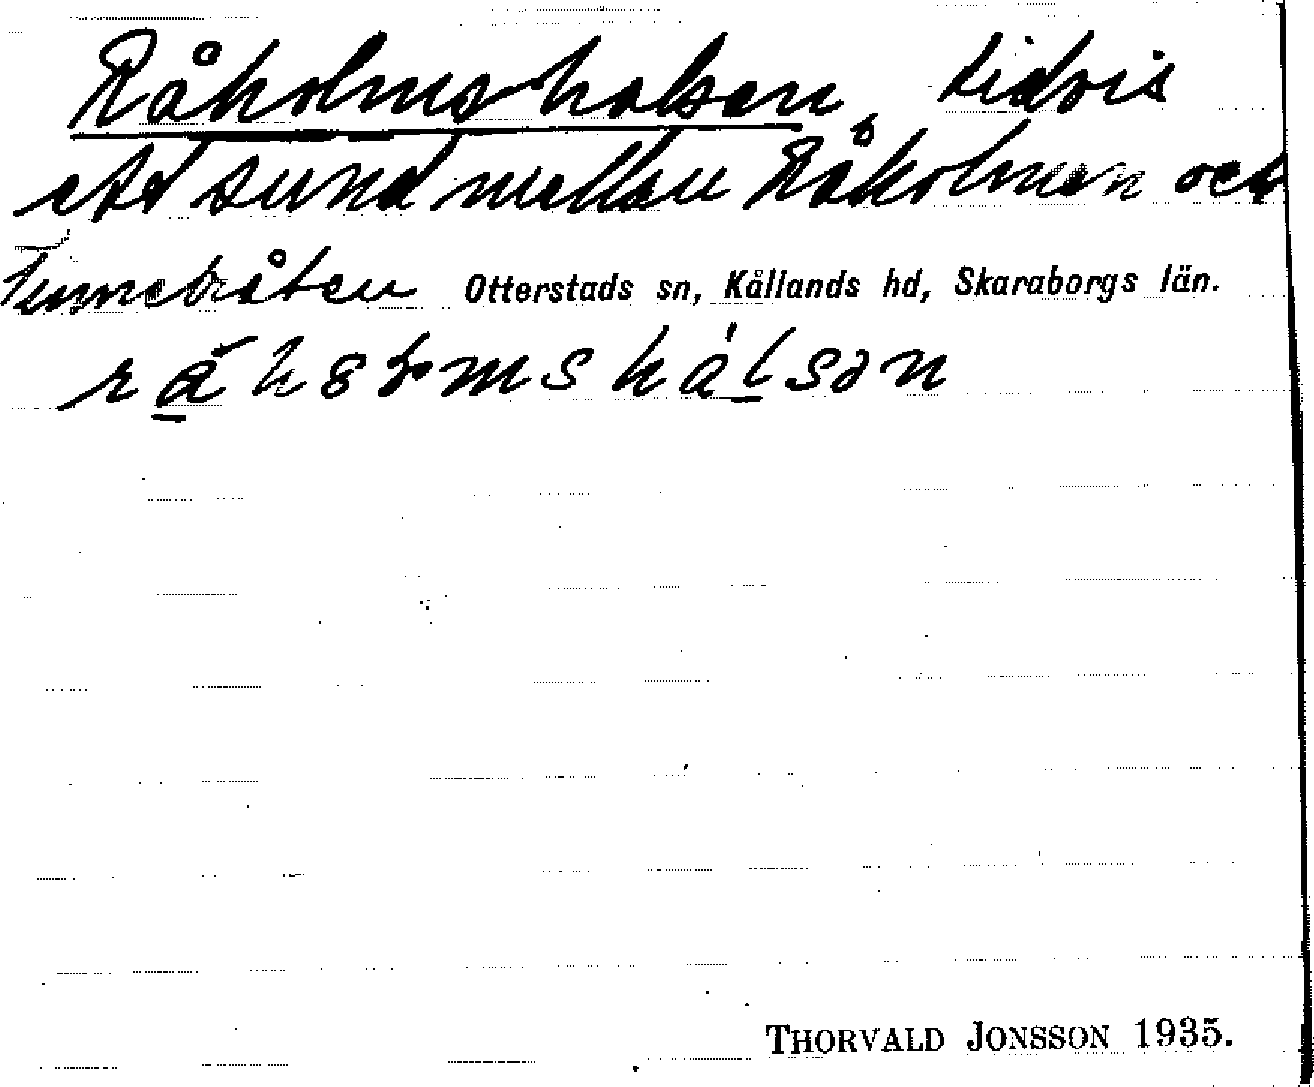 Råholmshalsen, tidvis
ett sund mellan Råholmen och
Otterstads sn, Kållands hd, Skaraborgs län.
THORVALD JONSSON 1935.